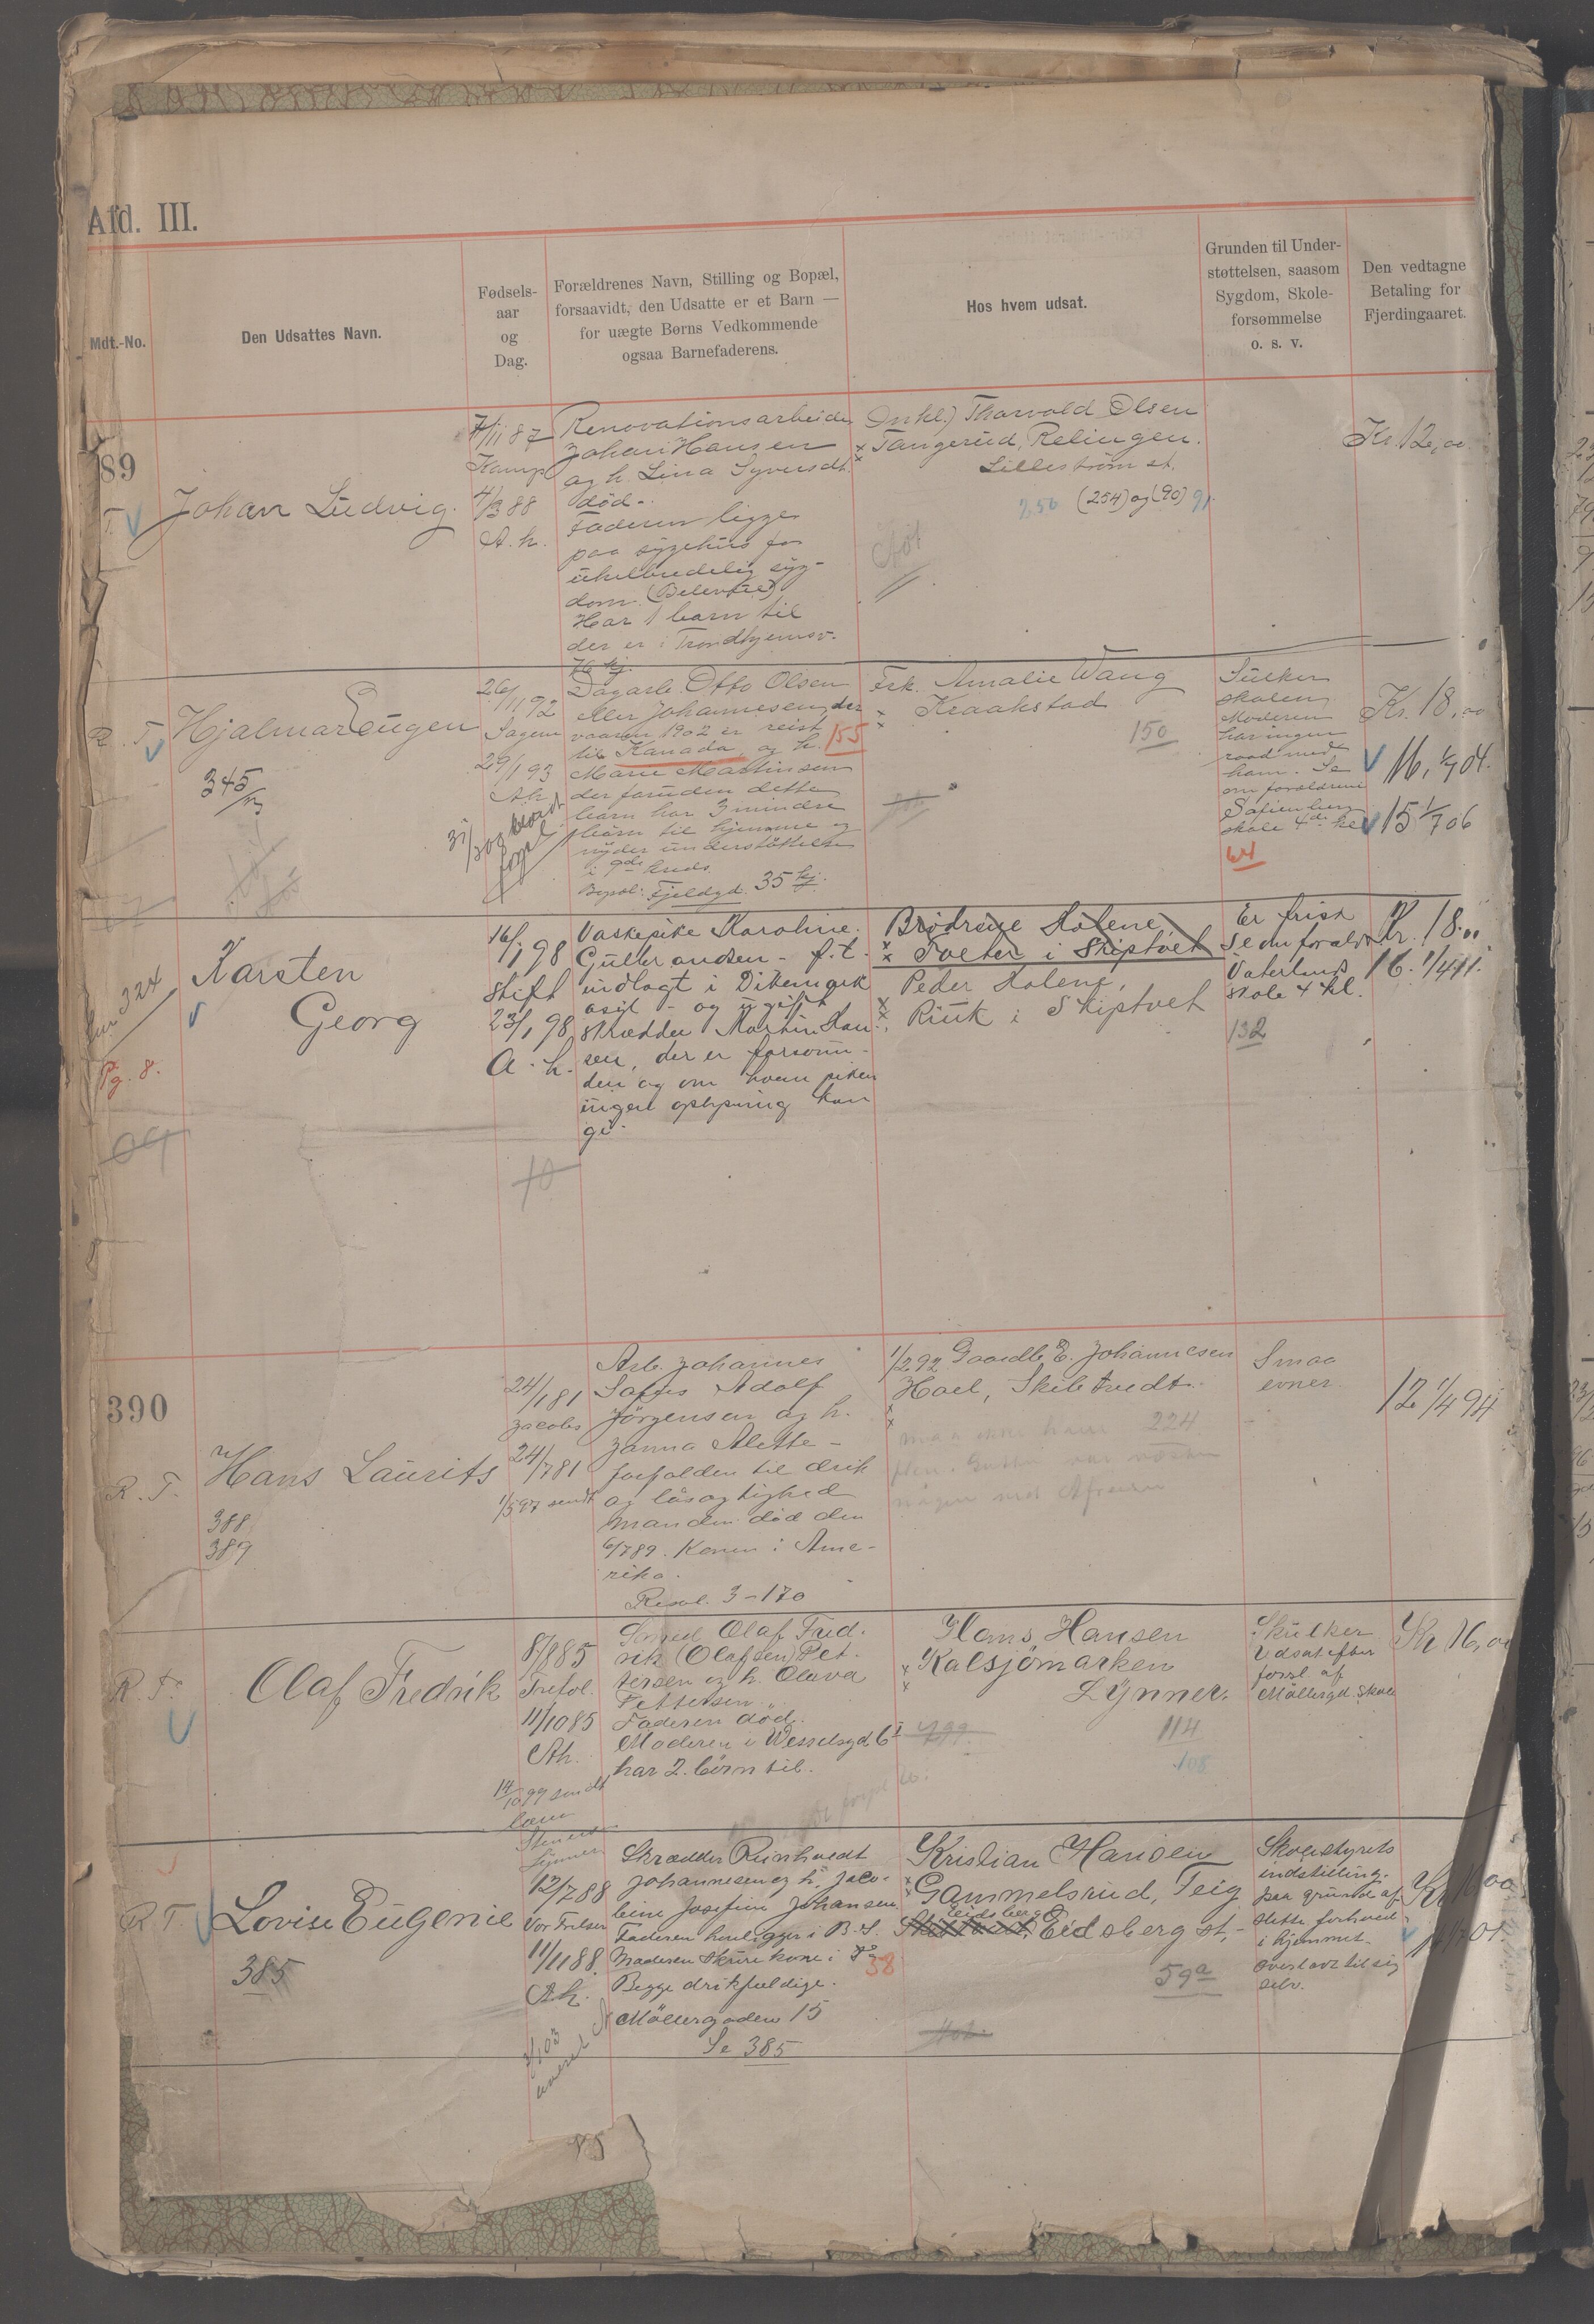 Afd. III.
Mdt.-No.
Den Udsattes Navn.
Fødsels-
aar
og
Dag.
Forældrenes Navn, Stilling og Bopæl,
forsaavidt, den Udsatte er et Barn —
for uægte Børns Vedkommende
ogsaa Barnefaderens.
Hos hvem udsat.
Grunden til Under-
støttelsen, saasom
Sygdom, Skole-
forsømmelse
o. s. v.
Den vedtagne
Betaling for
Fjerdingaaret.
89
T.
Johan Ludvig.
7/11 87
Kamp
4/3 88
A. h.
Renovationsarbeider
Johan Hansen
og h. Lina Syversdt.
død.
Faderen ligger
paa sygehus for
uhelbredelig syg-
dom.
Har 1 barn til
der er i Trondhjemsv.
76 kj.
Onkel.) Thorvald Olsen
Tangerud, Relingen.
Lillestrøm st.
250 (254) og (90) 91.
Kr. 12,00
R. T.
Hjalmar Eugen
345/
26/11 92
Sagene
29/1 93
A.h.
Dagarb. Otto Olsen
eller Johannesen, der
vaaren 1902 er reist
til Kanada, og h. 155
Marie Martinsen
der foruden dette
barn har 3 mindre
børn til hjemme og
nyder understøttelse
i 9de kreds.
Bopæl: Fjeldgd. 35 kj.
Frk. Amalie Wang
Kraakstad
150
Skulker
skolen
Moderen
har ingen
raad med
ham. Se
om forældrene
Sofienberg
skole 4de kl.
64
Kr. 18,00
16, 1/7 04.
15 1/7 06
324
Pg. 8.
Karsten
Georg
16/1 98
Stift
23/1 98
A. h.
Vaskepike Karoline
Gulbrandsen - f.t.
indlagt i Dikemark
asyl - og ugift
skrædder Martin Han-
sen, der er forsvun-
den og om hvem piken
ingen oplysning kan
gi.
Brødrene Holene,
Tveter i Skiptvet
Peder Holene,
Riiik i Skiptvet
Er frisk
Se om foræld.
Vaterlands
skole 4 kl.
132
Kr. 18.,,
16. 1/4 11.
10
390
R. T.
Hans Laurits
388
389
24/1 81
Jacobs
24/7 81
1/5 97 sendt
Arb. Johannes
Sofus Adolf
Jørgensen og h.
Janna Alette -
forfalden til drik
og løsagtighed
Manden død den
6/7 89. Konen i Ame-
rika.
Resol. 3-170
1/2 92 Gaardb. E. Johannesen
Hoel, Skibtvedt.
224
Smaa
evner
12 1/4 94
R. F.
Olaf Fredrik
8/8 85
Trefol.
11/10 85
Ah.
14/10 99 sendt
Smed Olaf Fred-
rik (Olafsen) Pet-
tersen og h. Olava
Pettersen.
Faderen død.
Moderen i Wesselsgd. 6 I
har 2 børn til.
Hans Hansen
Kalsjømarken
Lynner.
114
108
Skulker
Udsat efter
forsl. af
Møllergd. skole
Kr. 16,00
R. T.
Lovise Eugenie
385
12/7 88
Vor Frelser
11/11 88.
A.h.
Skrædder Reinhardt
Johannesen og h. Jaco-
bine Josefine Johansen
Faderen henligger i B. S.
Moderen skurekone i do
38
Begge drikfældige.
Møllergaden 15
Se 385
Kristian Hansen
Gammelsrud, Teig
Eidsberg
Eidsberg st.
59a
Skolestyrets
indstilling.
paa grund af
slette forhold
i hjemmet.
Overladt til sig
selv.
Kr. 16,00
85